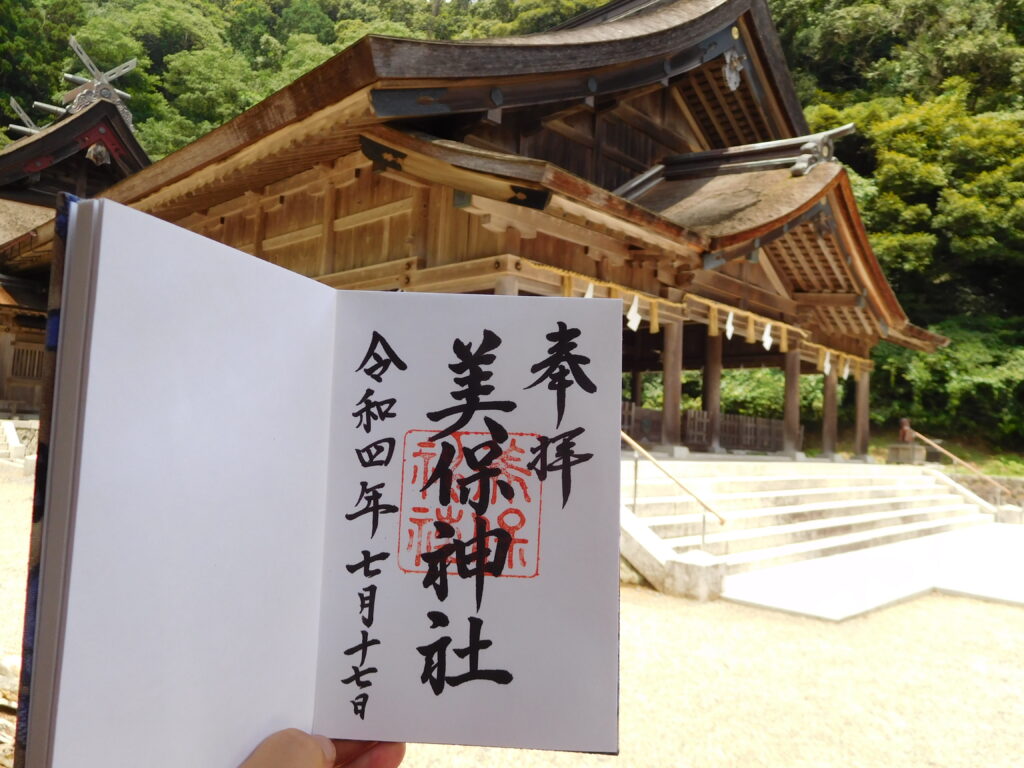 奉拝
美保神社
美保
神社
令和四年七月十七日